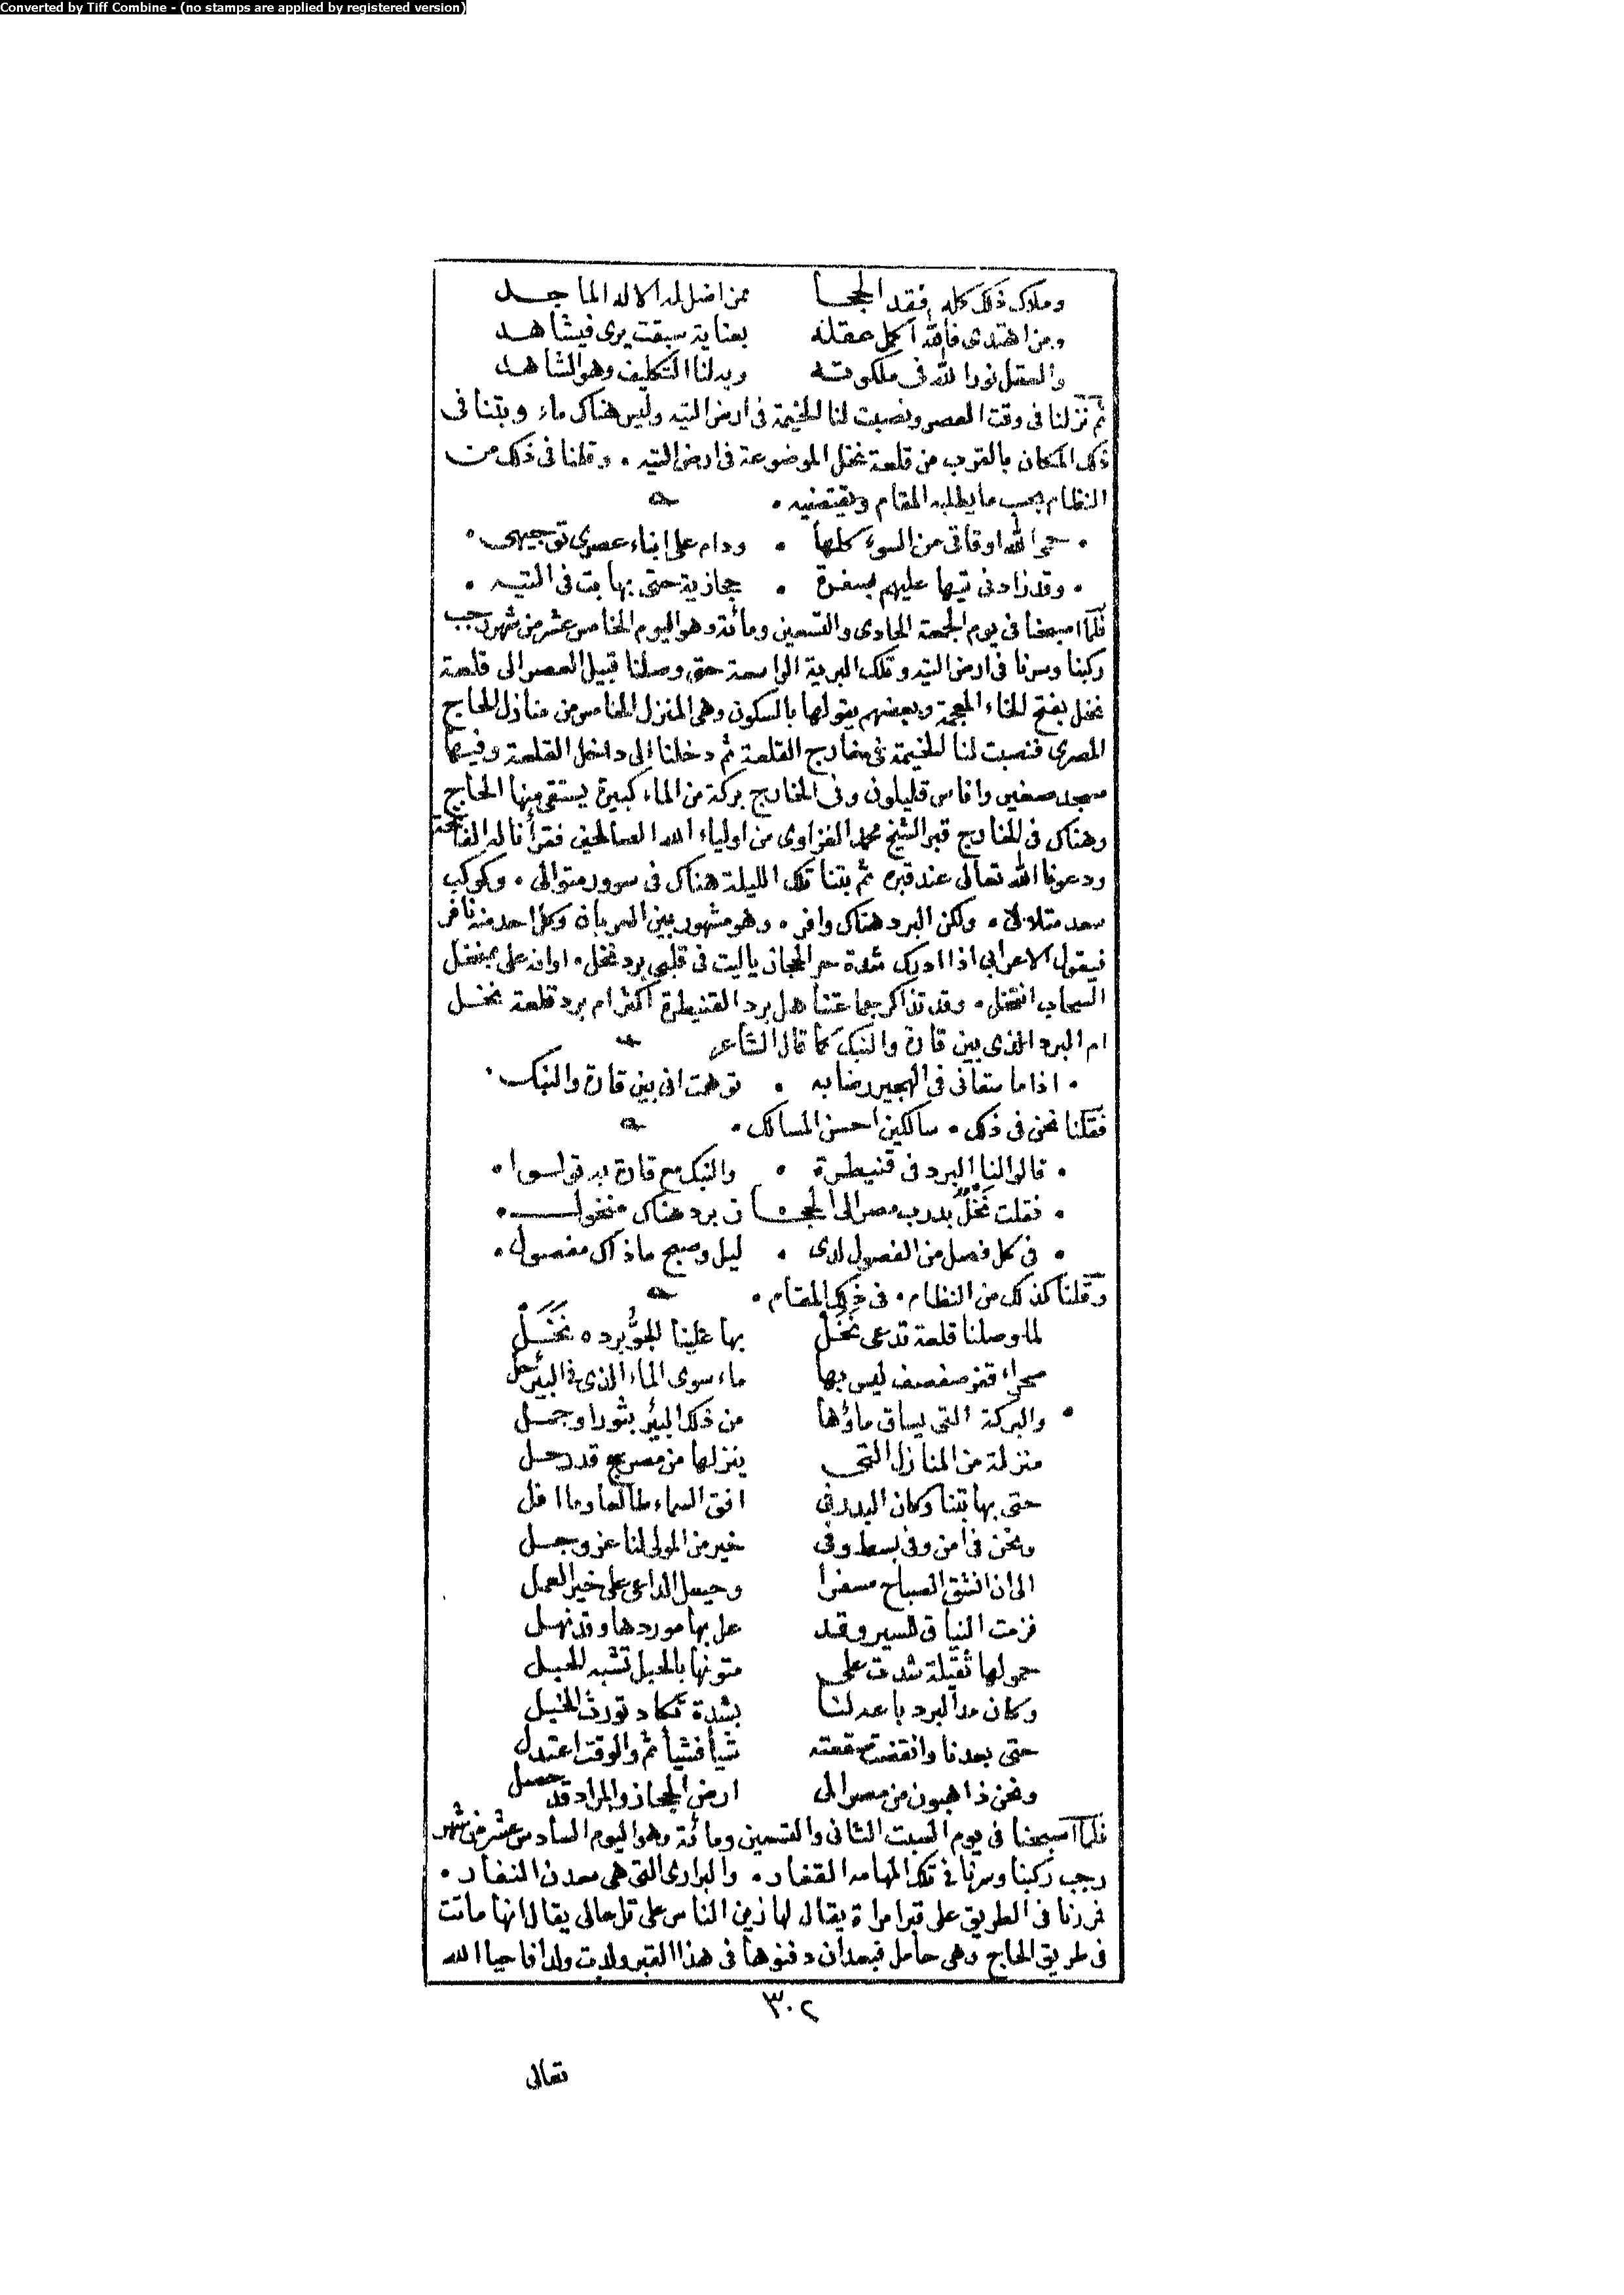 Converted by Tiff Combine - (no stamps are applied by registered version)
وملاك ذلك كله فقد الحجا ممن اضل له الاله الماجد
ومن اهتدى فالله اكمل عقله بعناية سبقت يرى فيشاهد
والعقل نور الله فى ملكوته وبه لنا التكليف وهو الشاهد
ثم نزلنا فى وقت العصر ونصبت لنا الخيمة فى ارض التيه وليس هناك ماء وبتنا فى
ذلك المكان بالقرب من قلعة نخل الموضوعة فى ارض التيه . وقلنا فى ذلك من
النظام بحسب ما يطلبه المقام ويقتضيه .
. حمى الله اوقاتى من السوء كلها . ودام على ابناء عصرى توجيهى .
. وقد زاد فى تيها عليهم بسفرة . حجازية حتى بها بت فى التيه .
فلما اصبحنا فى يوم الجمعة الحادى والتسعين ومائة وهو اليوم الخامس عشر من شهر رجب
ركبنا وسرنا فى ارض التيه وتلك البرية الواسعة حتى وصلنا قبيل العصر الى قلعة
نخل بفتح الخاء المعجمة وبعضهم يقولها بالسكون وهى المنزل الخامس من منازل الحاج
المصرى فنصبت لنا الخيمة فى خارج القلعة ثم دخلنا الى داخل القلعة وفيها
مسجد صغير واناس قليلون وفى الخارج بركة من الماء كبيرة يستقى منها الحاج
وهناك فى الخارج قبر الشيخ محمد الغزاوى من اولياء الله الصالحين فقرأنا له الفاتحة
ودعونا الله تعالى عند قبره ثم بتنا تلك الليلة هناك فى سرور متوالى . وكوكب
سعد متلالئ . ولكن البرد هناك وافر . وهو مشهور بين العربان وكل احد منه نافر
فيقول الاعرابى اذا ادرك شدة حر الحجاز ياليت فى قلبى برد نخل . اوانه على بمنخل
السحاب انتخل . وقد تذاكر جماعتنا هل برد القنيطرة اكثر ام برد قلعة نخل
ام البرد الذى بين قارة والنبك كما قال الشاعر
. اذا ما سقانى فى الهجير رضابه . توهمت انى بين قارة والنبك .
فقلنا نحن فى ذلك . سالكين احسن المسالك .
. قالوا لنا البرد فى قنيطرة . والنبك مع قارة به قولوا .
. فقلت نخل بدرب مصر الى الحجاز برد هناك منخول .
. فى كل فصل من الفصول لدى . ليل وصبح ماذاك مفصول .
وقلنا كذلك من النظام . فى ذلك المقام .
لما وصلنا قلعة تدعى نخل بها علينا الجو برده نخل
صحراء قفر صفصف ليس بها ماء سوى الماء الذى فى البئر حل
. والبركة التى يساق ماؤها من ذلك البئر بثور او جمل
منزلة من المنازل التى ينزلها من مصر حج قد رحل
حتى بها بتنا وكان البدر فى افق السماء طالعا وما افل
ونحن فى امن وفى بسط وفى خير من المولى لنا عز وجل
الى ان انشق الصباح مسفرا وحيعل الداعى على خير العمل
فزمت النياق للسير وقد عل بها موردها وقد نهل
حمولها ثقيلة شدت على متونها بالحبل تشبه الجبل
وكان مد البرد باعد لنا بشدة تكاد تورث الخبل
حتى بعدنا وانقضت صقعته شيأ فشيأ ثم والوقت اعتدل
ونحن ذاهبون من مصر الى ارض الحجاز والمراد قد حصل
فلما اصبحنا فى يوم السبت الثانى والتسعين ومائة وهو اليوم السادس عشر من شهر
رجب ركبنا وسرنا فى تلك المهامه القفار . والبرارى التى هى معدن النفار .
فمررنا فى الطريق على قبر امراة يقال لها زين الناس على تل عالى يقال انها ماتت
فى طريق الحاج وهى حامل فبعد ان دفنوها فى هذا القبر ولدت ولدا فاحيا الله
٣٠٢
تعالى